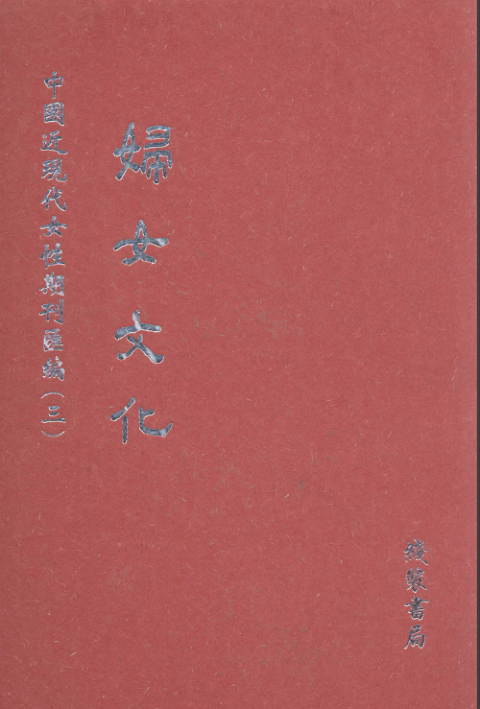 中國近現代女性期刊匯編(三)
婦女文化
綫裝書局